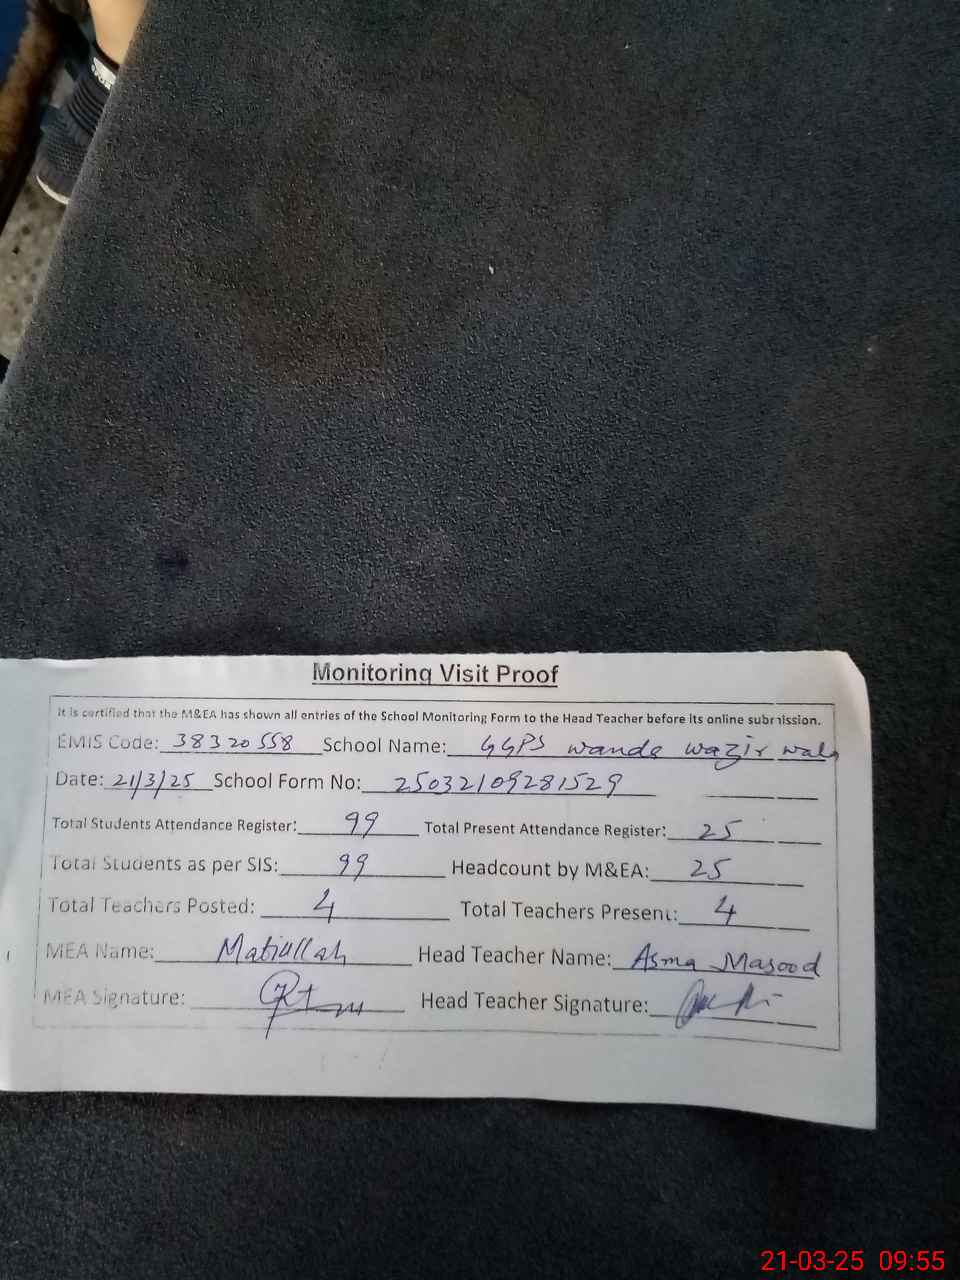 Monitoring Visit Proof
It is certified that the M&EA has shown all entries of the School Monitoring Form to the Head Teacher before its online submission.
EMIS Code: 38320558 School Name: GGPS wanda wazir wala
Date: 21/3/25 School Form No: 25032109281529
Total Students Attendance Register: 99 Total Present Attendance Register: 25
Total Students as per SIS: 99 Headcount by M&EA: 25
Total Teachers Posted: 4 Total Teachers Present: 4
MEA Name: Matiullah Head Teacher Name: Asma Masood
MEA Signature: Head Teacher Signature:
21-03-25 09:55